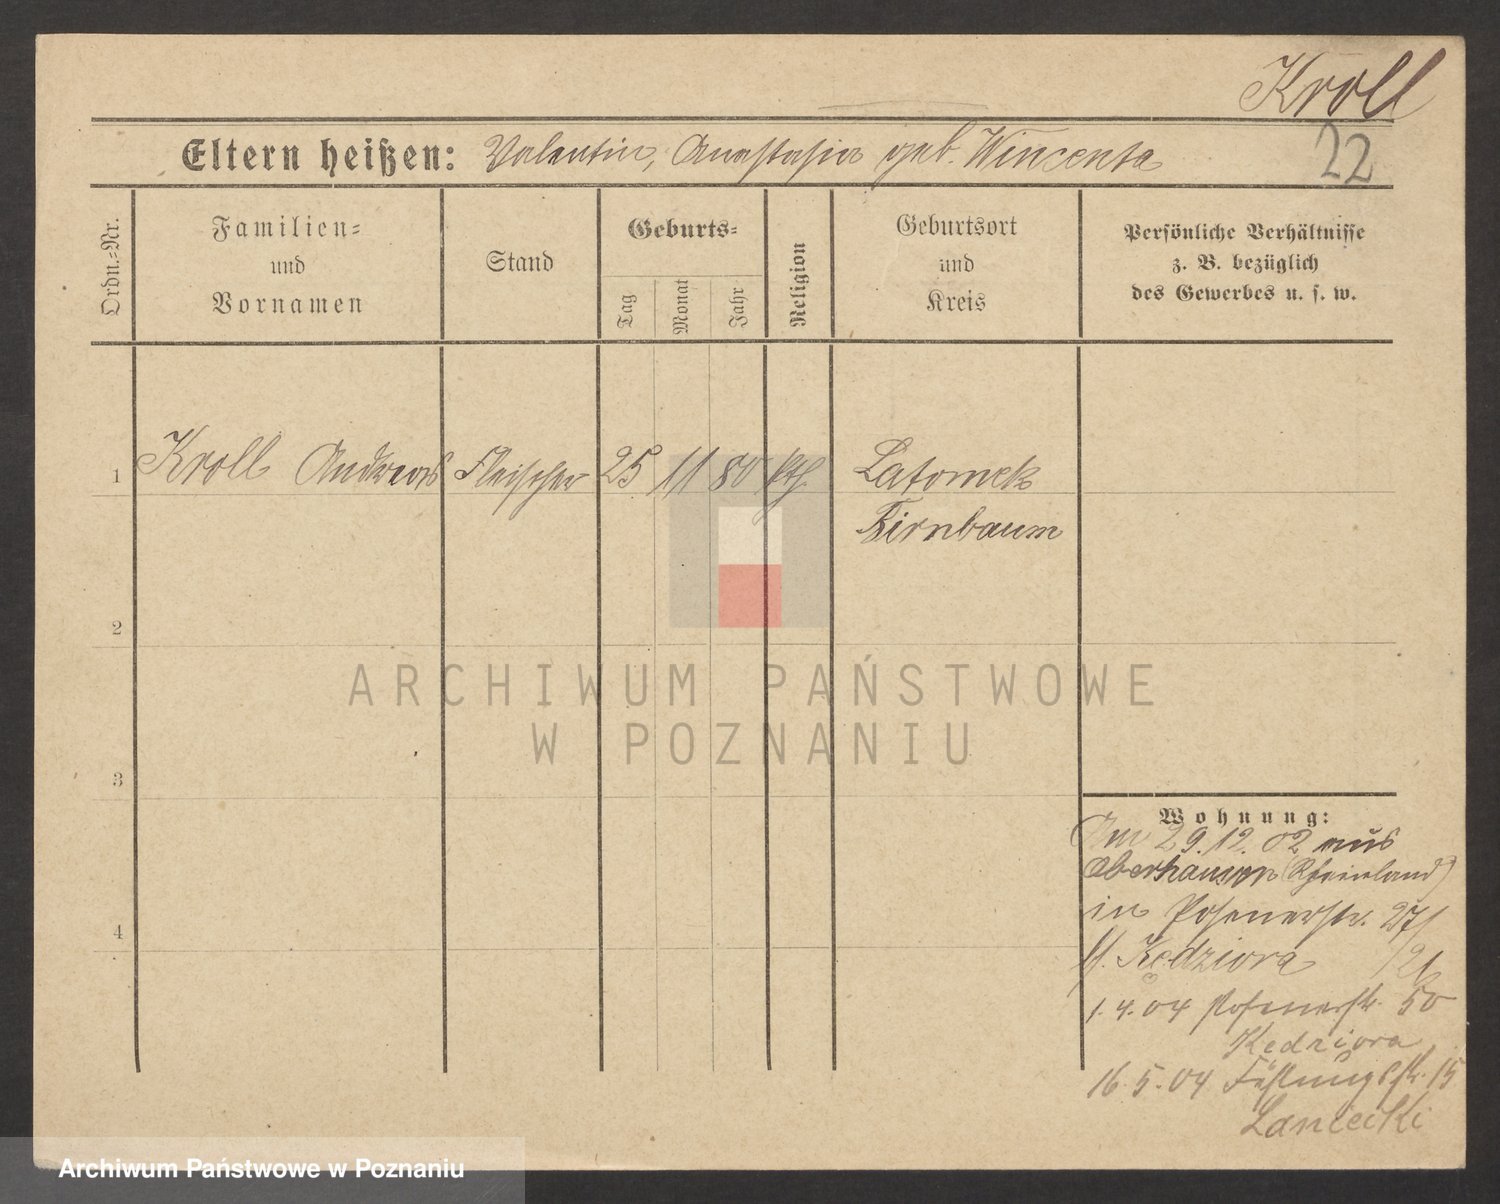 Kroll
22
Eltern heißen: Valentin, Anastasia geb. Wincenta
Ordn.-Nr.
Familien-
und
Vornamen
Stand
Geburts-
Tag
Monat
Jahr
Religion
Geburtsort
und
Kreis
Persönliche Verhältnisse
z. B. bezüglich
des Gewerbes u. s. w.
1 Kroll Andreas Fleischer 25 11 80 kth. Latomek
Birnbaum
2
3
4
ARCHIWUM PAŃSTWOWE
W POZNANIU
Wohnung:
Am 29.12.02 aus
Oberhausen (Rheinland)
in Posenerstr. 27/
Kędziora
1.4.04 Posenerstr. 50
Kedziora
16.5.04 15
Laniecki
Archiwum Państwowe w Poznaniu